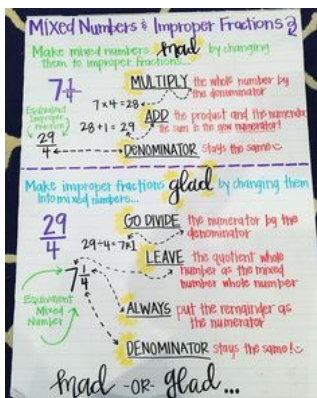 Mixed Numbers & Improper Fractions
Make mixed numbers mad by changing
them to improper fractions...
7 1/4
MULTIPLY the whole number by
the denominator
7 x 4 = 28
Equivalent
Improper
Fraction
29/4
28 + 1 = 29
ADD the product and the numerator
the sum is the new numerator!
DENOMINATOR stays the same
Make improper fractions glad by changing them
into mixed numbers...
29/4
GO DIVIDE the numerator by the
denominator
29 ÷ 4 = 7R1
LEAVE the quotient whole
number as the mixed
number whole number
7 1/4
Equivalent
Mixed
Number
ALWAYS put the remainder as
the numerator
DENOMINATOR stays the same!
mad -OR- glad...